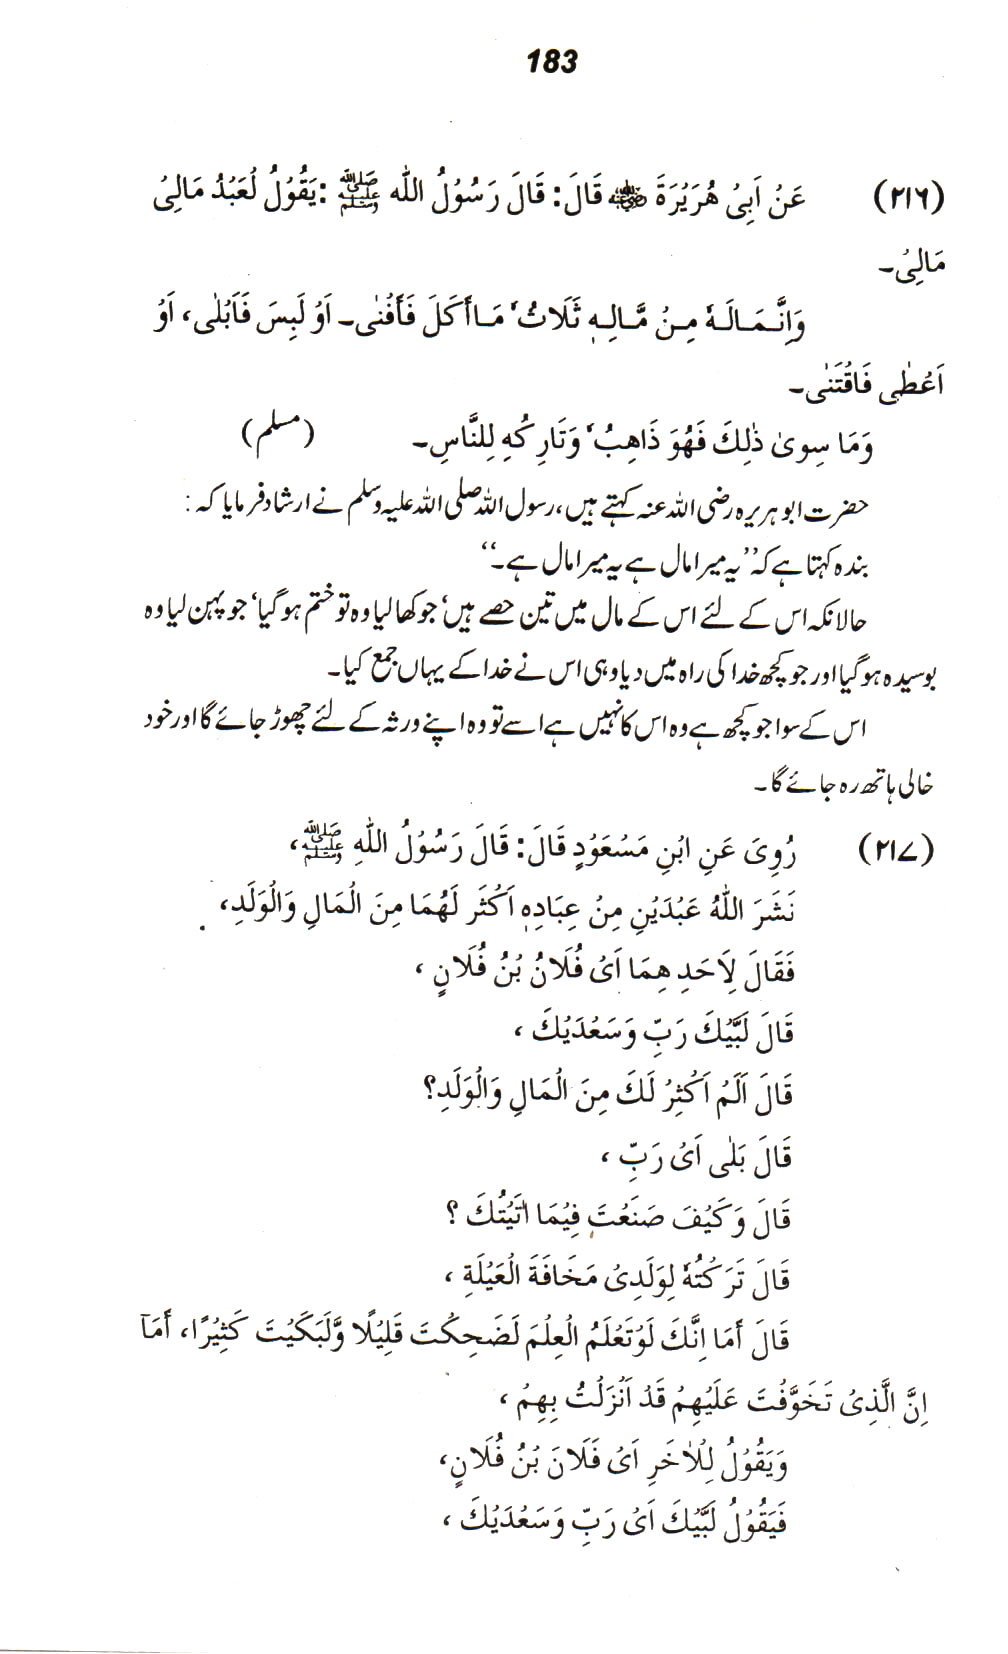 183
(٢١٦) عَنُ اَبِیُ هُرَيُرَةَ رضی اللہ عنہ قَالَ: قَالَ رَسُوُلُ اللّٰه ﷺ :يَقُوُلُ لُعَبُدُ مَالِیُ
مَالِیُ۔
وَاِنَّـمَـالَـهٗ مِـنُ مَّـالِـهٖ ثَلَاثُ ٗ مَـا أَكَلَ فَأَفُنٰی۔ اَوُ لَبِسَ فَاَبُلٰی، اَوُ
اَعُطٰی فَاقُتَنٰی۔
وَمَا سِویٰ ذٰلِكَ فَهُوَ ذَاهِبُ ٗ وَتَارِ كُهٖ لِلنَّاسِ۔ (مسلم)
حضرت ابو ہریرہ رضی اللہ عنہ کہتے ہیں، رسول اللہ صلی اللہ علیہ وسلم نے ارشاد فرمایا کہ:
بندہ کہتا ہے کہ ’’یہ میرا مال ہے یہ میرا مال ہے۔‘‘
حالانکہ اس کے لئے اس کے مال میں تین حصے ہیں‘ جو کھا لیا وہ تو ختم ہو گیا‘ جو پہن لیا وہ
بوسیدہ ہو گیا اور جو کچھ خدا کی راہ میں دیا وہی اس نے خدا کے یہاں جمع کیا۔
اس کے سوا جو کچھ ہے وہ اس کا نہیں ہے اسے تو وہ اپنے ورثہ کے لئے چھوڑ جائے گا اور خود
خالی ہاتھ رہ جائے گا۔
(٢١٧) رُوِیَ عَنِ ابُنِ مَسُعَوُدٍ قَالَ: قَالَ رَسُوُلُ اللّٰهِ ﷺ،
نَشَرَ اللّٰهُ عَبُدَيُنِ مِنُ عِبَادِهٖ اَكُثَر لَهُمَا مِنَ الُمَالِ وَالُوَلَدِ،
فَقَالَ لِاَحَدِ هِمَا اَیُ فُلَانُ بُنُ فُلَانٍ ،
قَالَ لَبَّيُكَ رَبِّ وَسَعُدَيُكَ ،
قَالَ اَلَمُ اَكُثِرُ لَكَ مِنَ الُمَالِ وَالُوَلَدِ؟
قَالَ بَلٰی اَیُ رَبِّ ،
قَالَ وَكَيُفَ صَنَعُتَ فِيُمَا اٰتَيُتُكَ ؟
قَالَ تَرَكُتُهٗ لِوَلَدِیُ مَخَافَةَ الُعَيُلَةِ ،
قَالَ أَمَا اِنَّكَ لَوُتَعُلَمُ الُعِلُمَ لَضَحِكُتَ قَلِيُلًا وَّلَبَكَيُتَ كَثِيُرًا، أَمَآ
اِنَّ الَّذِیُ تَخَوَّفُتَ عَلَيُهِمُ قَدُ اَنُزَلُتُ بِهِمُ ،
وَيَقُوُلُ لِلُاٰخَرِ اَیُ فَلَانَ بُنُ فُلَانٍ،
فَيَقُوُلُ لَبَّيُكَ اَیُ رَبِّ وَسَعُدَيُكَ ،